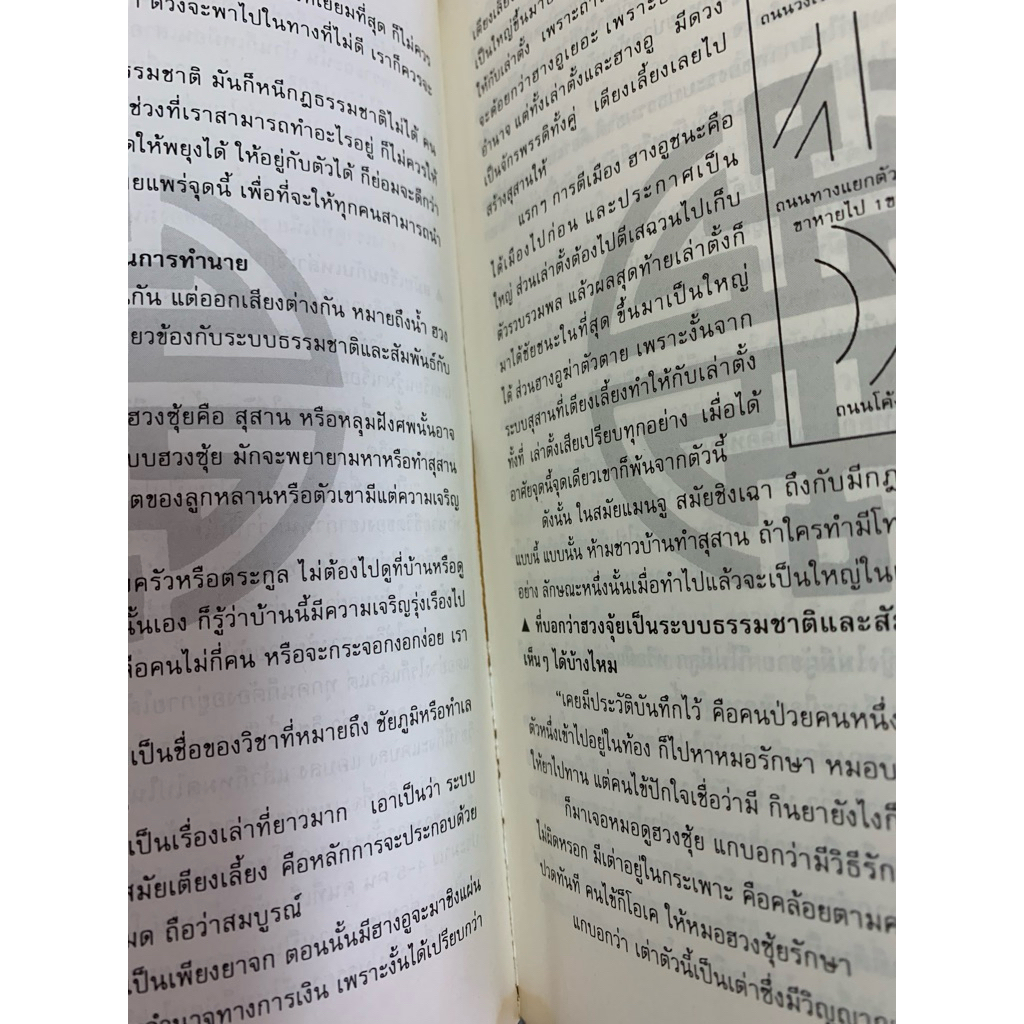 เยี่ยมที่สุด ก็ไม่ควร
ดวงจะพาไปในทางที่ไม่ดี เราก็ควรจะ
ธรรมชาติ มันก็หนีกฎธรรมชาติไม่ได้ คน
ช่วงที่เราสามารถทำอะไรอยู่ ก็ไม่ควรให้
ให้พยุงได้ ให้อยู่กับตัวได้ ก็ย่อมจะดีกว่า
แพร่จุดนี้ เพื่อที่จะให้ทุกคนสามารถนำ
ในการทำนาย
กัน แต่ออกเสียงต่างกัน หมายถึงน้ำ ฮวง
ยวข้องกับระบบธรรมชาติและสัมพันธ์กับ
ฮวงซุ้ยคือ สุสาน หรือหลุมฝังศพนั้นอาจ
บบฮวงซุ้ย มักจะพยายามหาหรือทำสุสาน
ตของลูกหลานหรือตัวเขามีแต่ความเจริญ
ครัวหรือตระกูล ไม่ต้องไปดูที่บ้านหรือดู
นั้นเอง ก็รู้ว่าบ้านนี้มีความเจริญรุ่งเรืองไป
คนไม่กี่คน หรือจะกระจอกงอกง่อย เรา
เป็นชื่อของวิชาที่หมายถึง ชัยภูมิหรือทำเล
เป็นเรื่องเล่าที่ยาวมาก เอาเป็นว่า ระบบ
สมัยเตียงเลี้ยง คือหลักการจะประกอบด้วย
มด ถือว่าสมบูรณ์
เป็นเพียงยาจก ตอนนั้นมีฮางอูจะมาชิงแผ่น
อำนาจทางการเงิน เพราะงั้นได้เปรียบกว่า
เป็นใหญ่ขึ้นมา
ให้กับเล่าตั้ง เพราะถ้า
จะด้อยกว่าฮางอูเยอะ เพราะ
อำนาจ แต่ทั้งเล่าตั้งและฮางอู มีดวง
เป็นจักรพรรดิทั้งคู่ เตียงเลี้ยงเลยไป
สร้างสุสานให้
แรกๆ การตีเมือง ฮางอูชนะคือ
ได้เมืองไปก่อน และประกาศเป็น
ใหญ่ ส่วนเล่าตั้งต้องไปตีเสฉวนไปเก็บ
ตัวรวบรวมพล แล้วผลสุดท้ายเล่าตั้งก็
มาได้ชัยชนะในที่สุด ขึ้นมาเป็นใหญ่
ได้ ส่วนฮางอูฆ่าตัวตาย เพราะงั้นจาก
ระบบสุสานที่เตียงเลี้ยงทำให้กับเล่าตั้ง
ทั้งที่ เล่าตั้งเสียเปรียบทุกอย่าง เมื่อได้
อาศัยจุดนี้จุดเดียวเขาก็พ้นจากตัวนี้
ถนน
ถนนทางแยกตัว
ขาหายไป 1 ข
ถนนโค้ง
ดังนั้น ในสมัยแมนจู สมัยชิงเฉา ถึงกับมีกฎ
แบบนี้ แบบนั้น ห้ามชาวบ้านทำสุสาน ถ้าใครทำมีโท
อย่าง ลักษณะหนึ่งนั้นเมื่อทำไปแล้วจะเป็นใหญ่ใน
▲ ที่บอกว่าฮวงจุ้ยเป็นระบบธรรมชาติและสัม
เห็นๆ ได้บ้างไหม
“เคยมีประวัติบันทึกไว้ คือคนป่วยคนหนึ่ง
ตัวหนึ่งเข้าไปอยู่ในท้อง ก็ไปหาหมอรักษา หมอบ
ให้ยาไปทาน แต่คนไข้ปักใจเชื่อว่ามี กินยายังไงก็
ก็มาเจอหมอดูฮวงซุ้ย แกบอกว่ามีวิธีรัก
ไม่ผิดหรอก มีเต่าอยู่ในกระเพาะ คือคล้อยตามค
ปวดทันที คนไข้ก็โอเค ให้หมอฮวงซุ้ยรักษา
แกบอกว่า เต่าตัวนี้เป็นเต่าซึ่งมีวิญญาณ